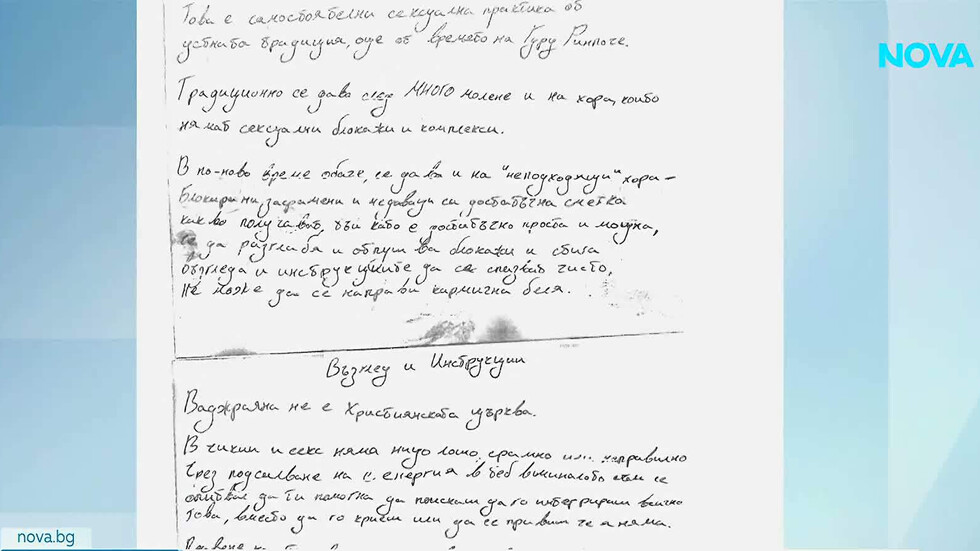 Това е самостоятелни сексуална практика от
устната традиция, още от времето на Гуру Ринпоче.
NOVA
Традиционно се дава след МНОГО молене и на хора, които
нямат сексуални блокажи и комплекси.
В по-ново време обаче, се дава и на "неподходящи" хора -
блокирани, засрамени и недаващи си достатъчна сметка
какво получават, тъй като е достатъчно проста и мощна,
да разглаба и отпушва блокажи и стига
възгледа и инструкциите да се спазват чисто,
не може да се направи кармична беля.
Възглед и Инструкции
Ваджраяна не е Християнската църква.
В чикии и секс няма нищо лошо, срамно или неправилно
Чрез подсилване на с. енергия в теб винаги съм се
опитвал да ти помогна да поискаш да го интегрираш всичко
това, вместо да го криеш или да се правиш че я няма.
nova.bg